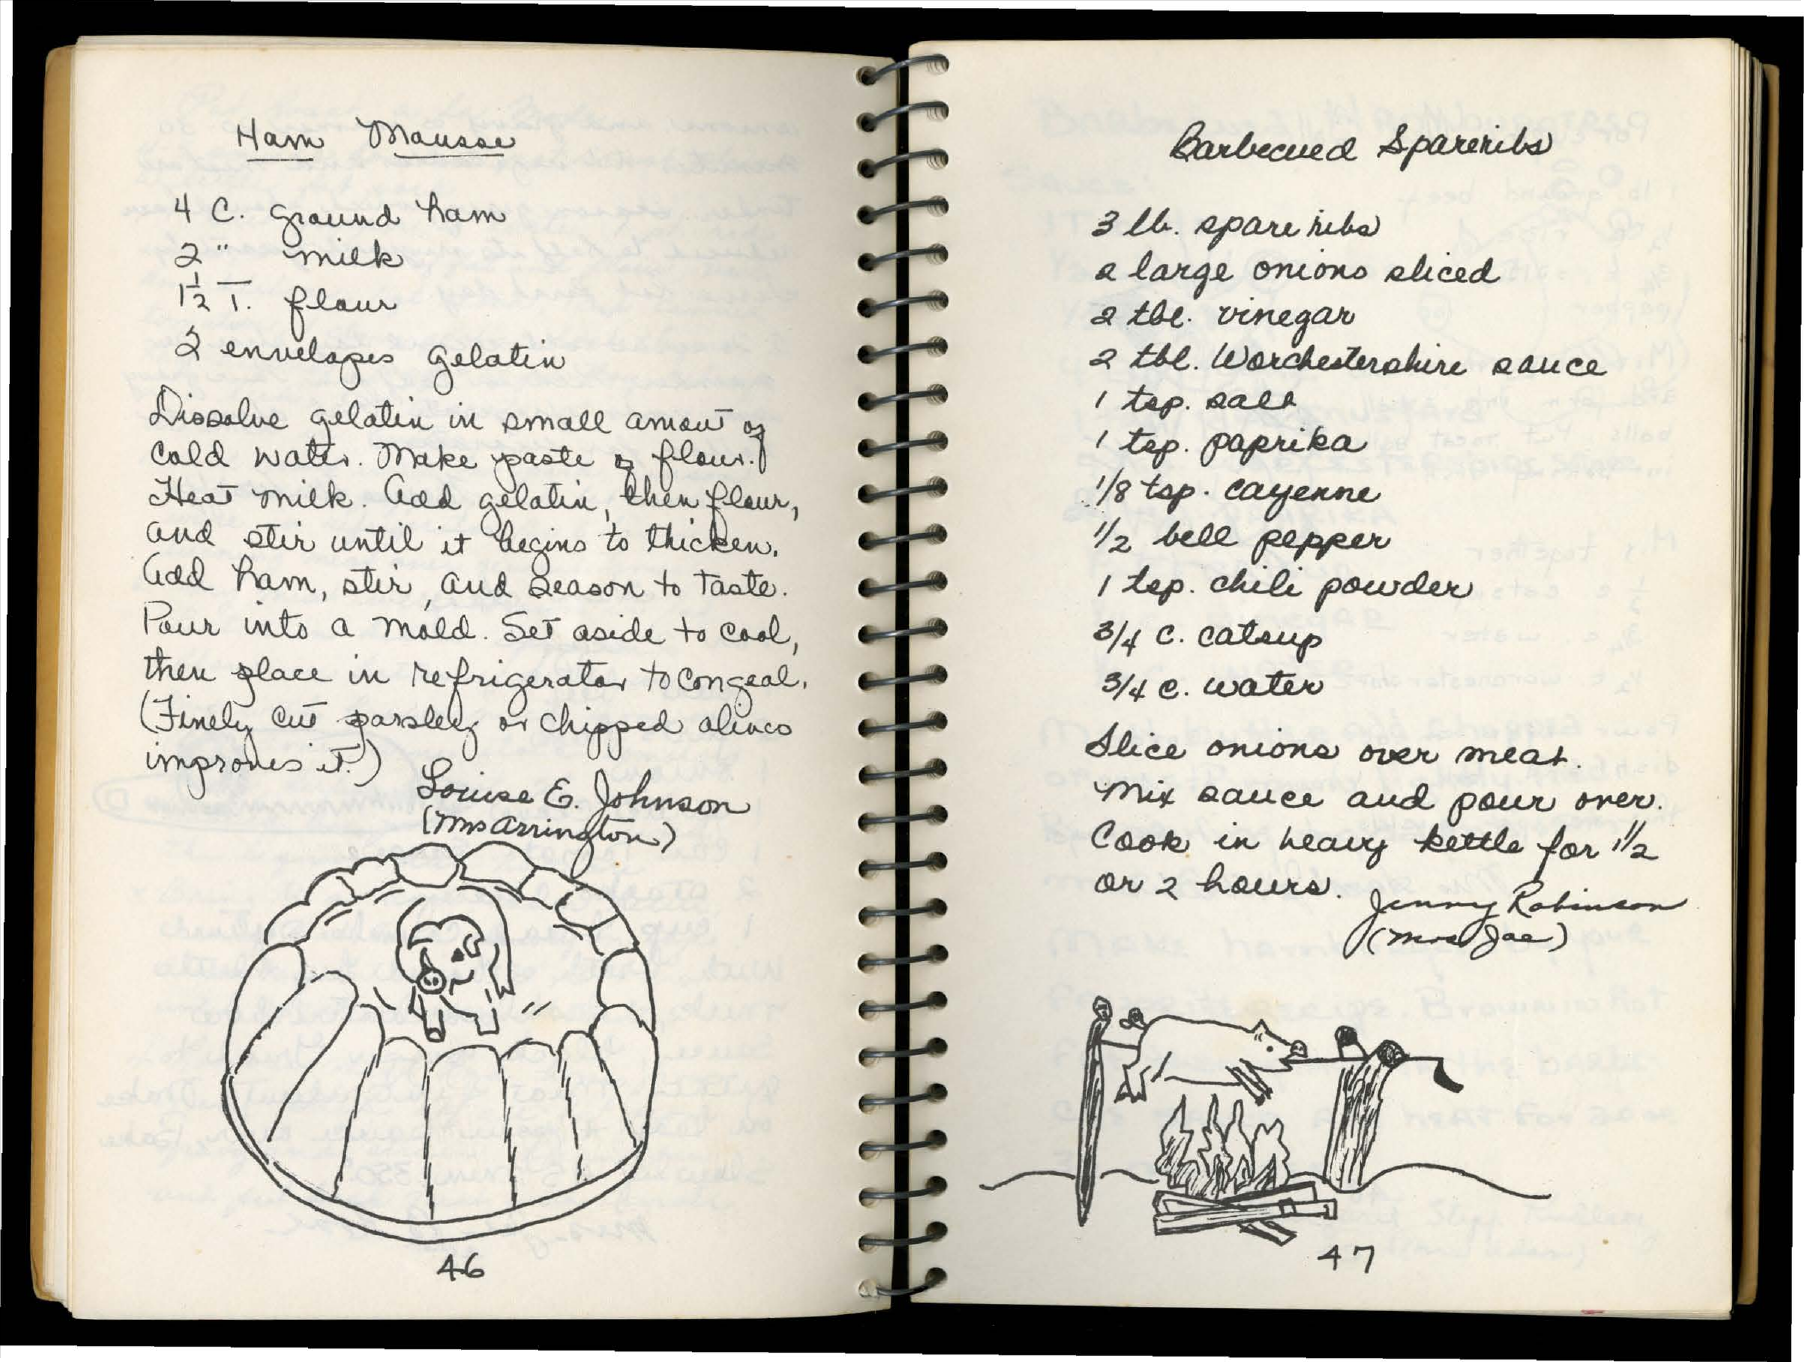 Ham Mousse
4 C. ground ham
2 " milk
1 1/2 T. flour
2 envelopes gelatin
Dissolve gelatin in small amout of
cold water. Make paste of flour.
Heat milk. Add gelatin, then flour,
and stir until it begins to thicken.
Add ham, stir, and season to taste.
Pour into a mold. Set aside to cool,
then place in refrigerator to congeal.
(Finely cut parsley or chipped olives
improves it.)
Louise E. Johnson
(Mrs Arrington)
46
Barbecued Spareribs
3 lb. spare ribs
2 large onions sliced
2 tbl. vinegar
2 tbl. Worchestershire sauce
1 tsp. salt
1 tsp. paprika
1/8 tsp. cayenne
1/2 bell pepper
1 tsp. chili powder
3/4 c. catsup
3/4 c. water
Slice onions over meat.
Mix sauce and pour over.
Cook in heavy kettle for 1 1/2
or 2 hours.
Jenny Robinson
(Mrs Jae)
47